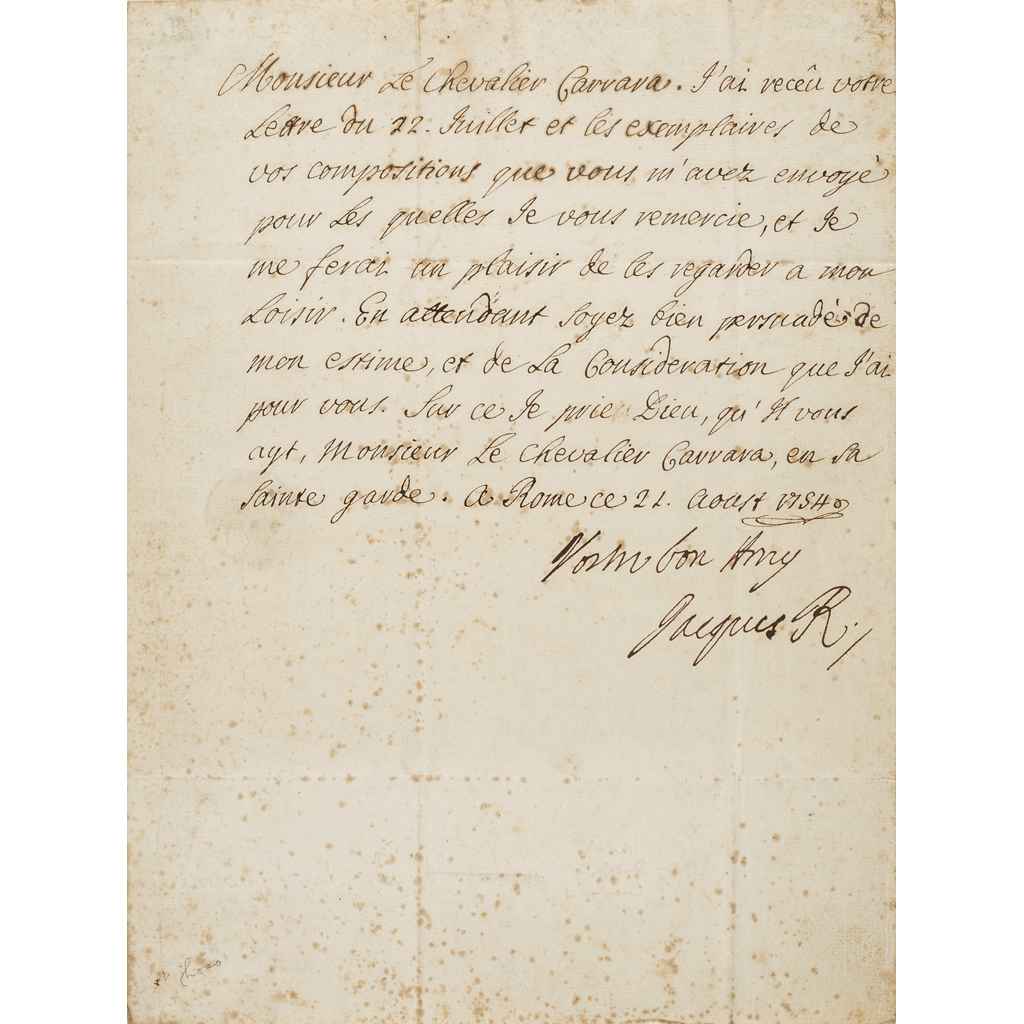 Monsieur Le Chevalier Carrara. J'ai recêu votre
Lettre du 22. Juillet et les exemplaires de
vos compositions que vous m'avez envoyé
pour Les quelles Je vous remercie, et Je
me ferai un plaisir de les regarder a mon
Loisir. En attendant soyez bien persuadé de
mon estime, et de La Consideration que J'ai
pour vous. Sur ce Je prie Dieu, qu'Il vous
ayt, Monsieur Le Chevalier Carrara, en sa
Sainte garde. A Rome ce 21. Aoust 1754
Vostre bon Amy
Jacques R.